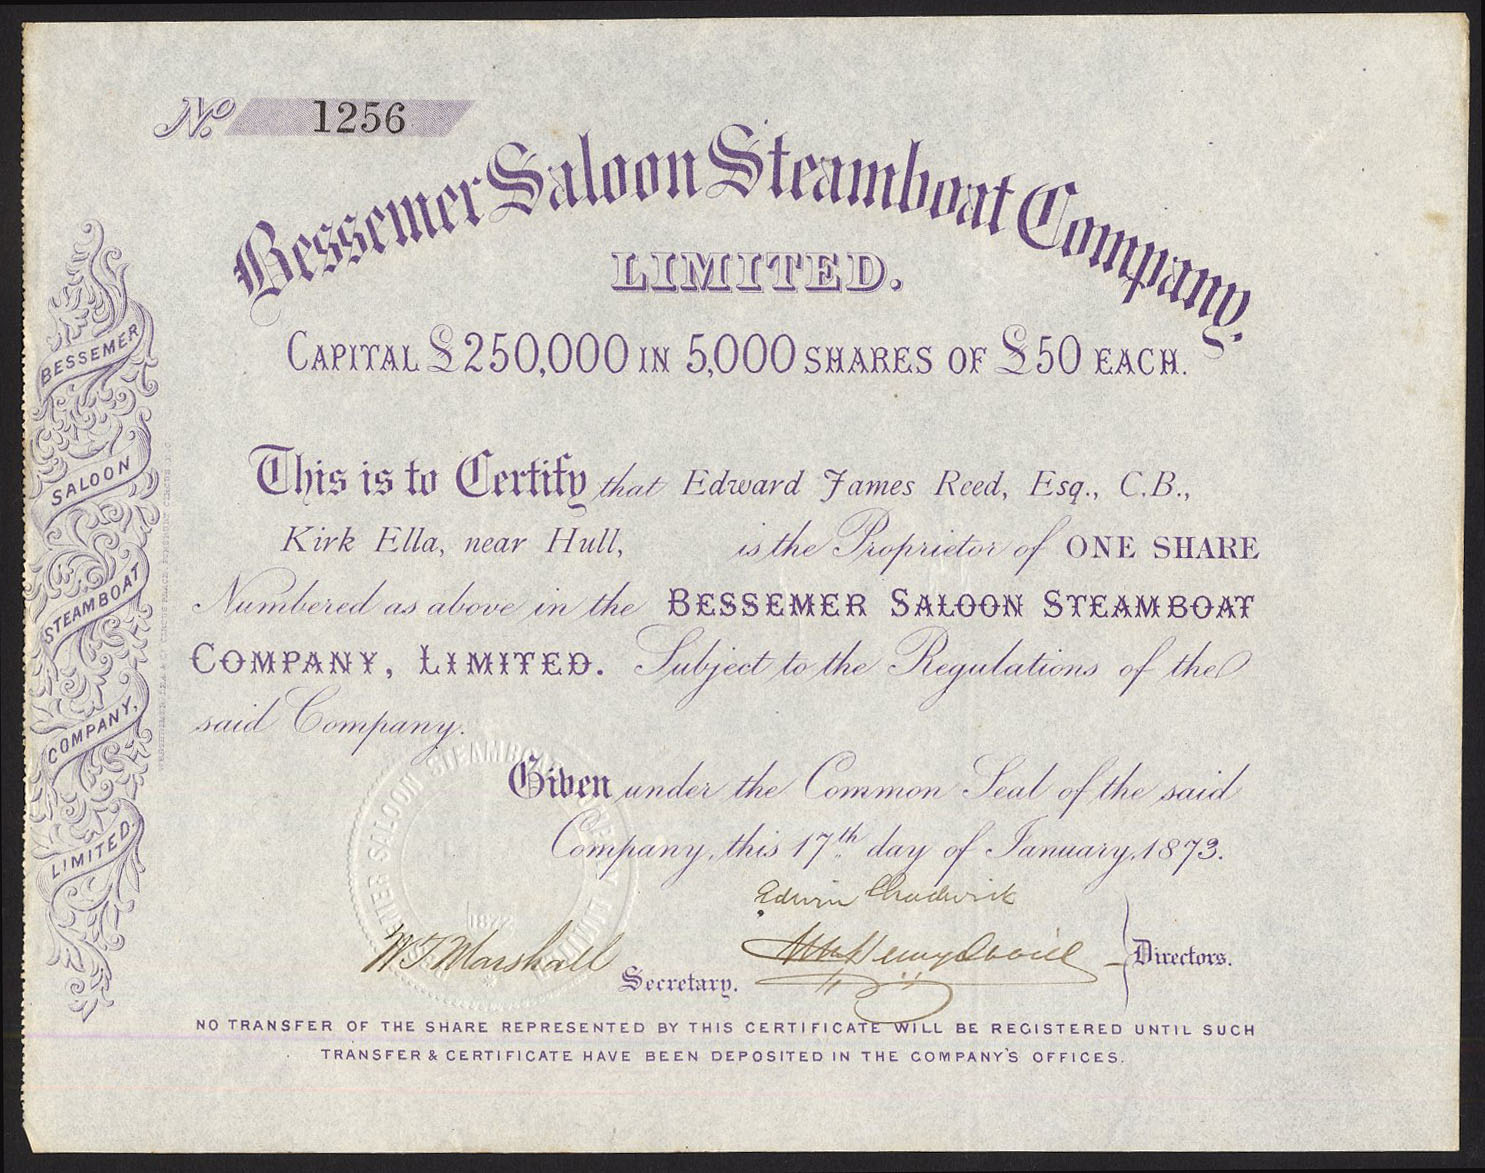 No. 1256
Bessemer Saloon Steamboat Company,
LIMITED.
CAPITAL £250,000 IN 5,000 SHARES OF £50 EACH.
This is to Certify that Edward James Reed, Esq., C.B.,
Kirk Ella, near Hull, is the Proprietor of ONE SHARE
Numbered as above in the BESSEMER SALOON STEAMBOAT
COMPANY, LIMITED. Subject to the Regulations of the
said Company.
Given under the Common Seal of the said
Company, this 17th day of January, 1873.
Edwin Chadwick
W T Marshall
Secretary.
Directors.
NO TRANSFER OF THE SHARE REPRESENTED BY THIS CERTIFICATE WILL BE REGISTERED UNTIL SUCH
TRANSFER & CERTIFICATE HAVE BEEN DEPOSITED IN THE COMPANY'S OFFICES.
BESSEMER
SALOON
STEAMBOAT
COMPANY,
LIMITED.